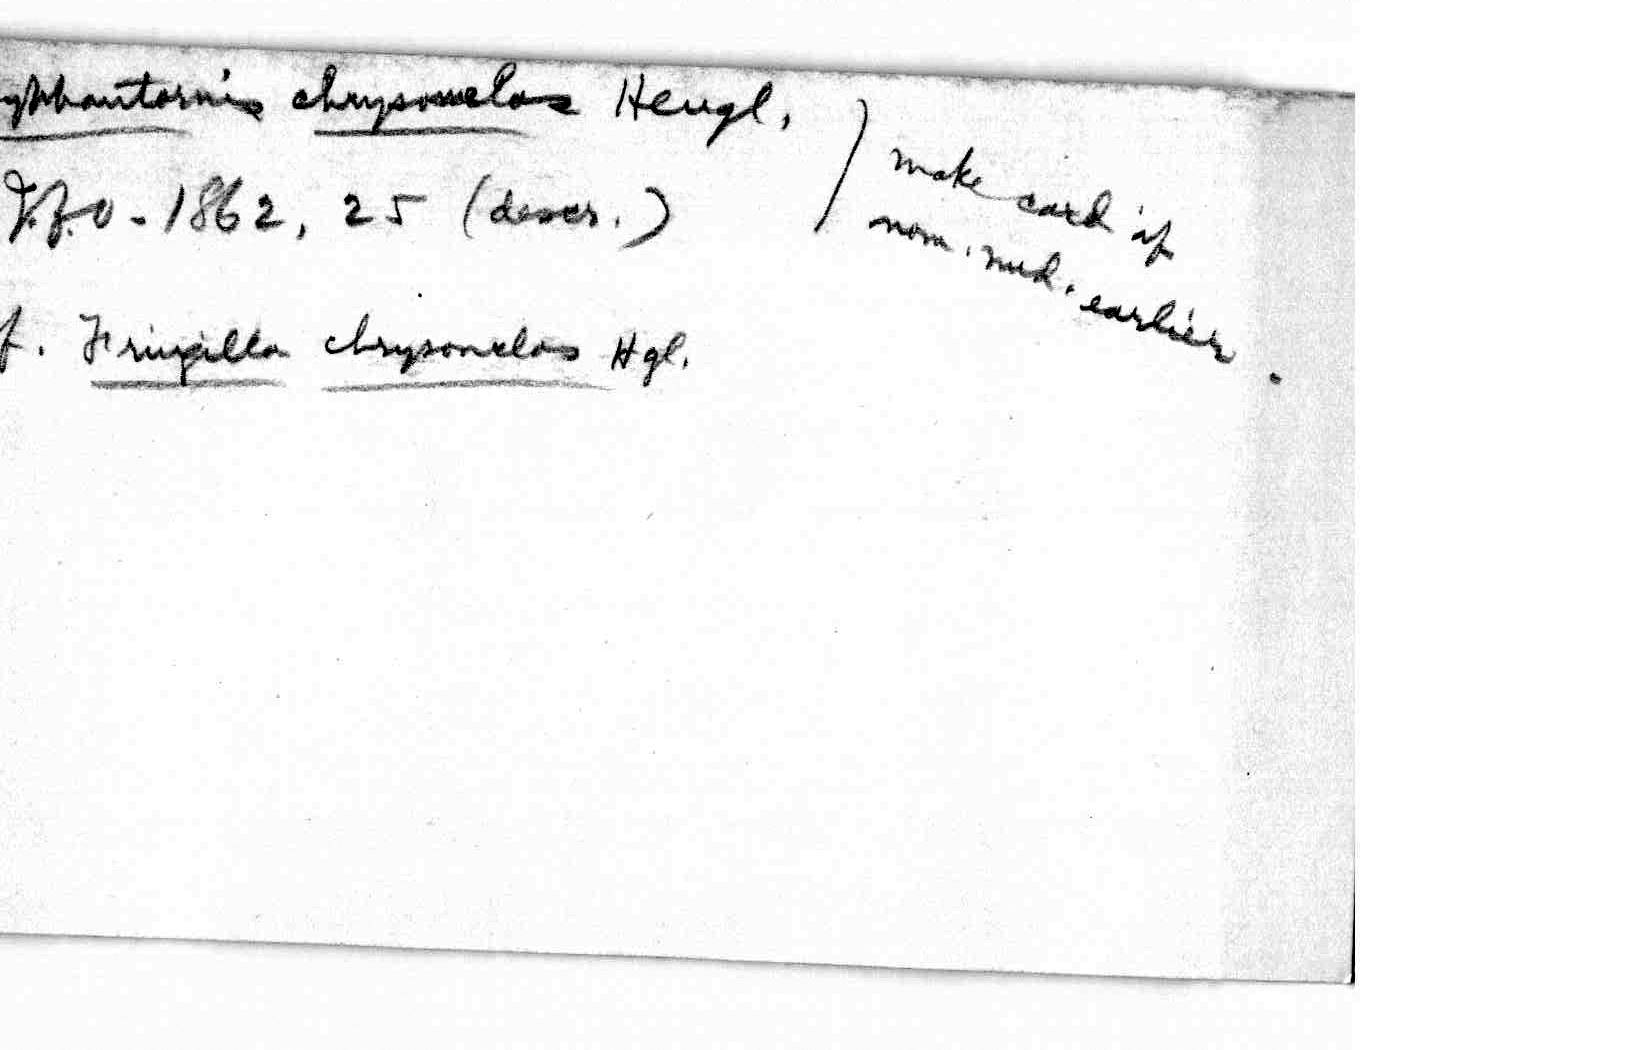 yphantornis chrysomelas Heugl.,
J.f.O. 1862, 25 (descr.)
f. Fringilla chrysomelas Hgl.
make card if
nom. nud. earlier.